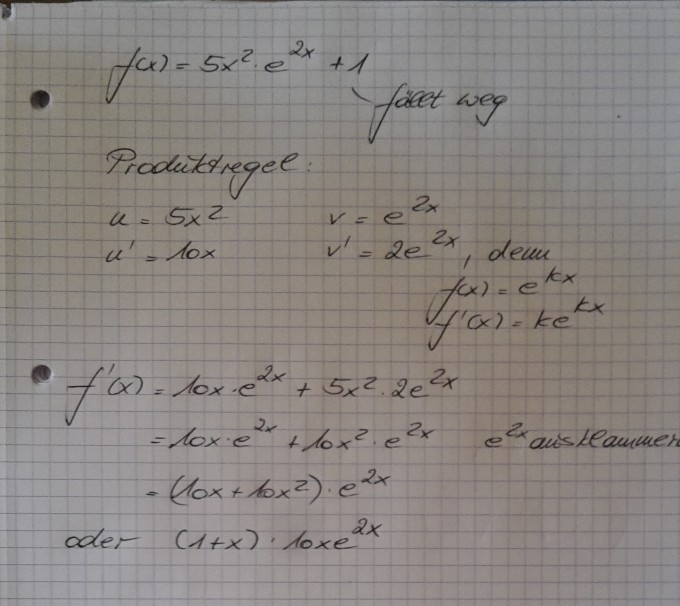 f(x) = 5x² · e^{2x} + 1
fällt weg
Produktregel:
u = 5x² v = e^{2x}
u' = 10x v' = 2e^{2x}, denn
f(x) = e^{kx}
f'(x) = ke^{kx}
f'(x) = 10x · e^{2x} + 5x² · 2e^{2x}
= 10x · e^{2x} + 10x² · e^{2x} e^{2x} ausklammern
= (10x + 10x²) · e^{2x}
oder (1+x) · 10xe^{2x}